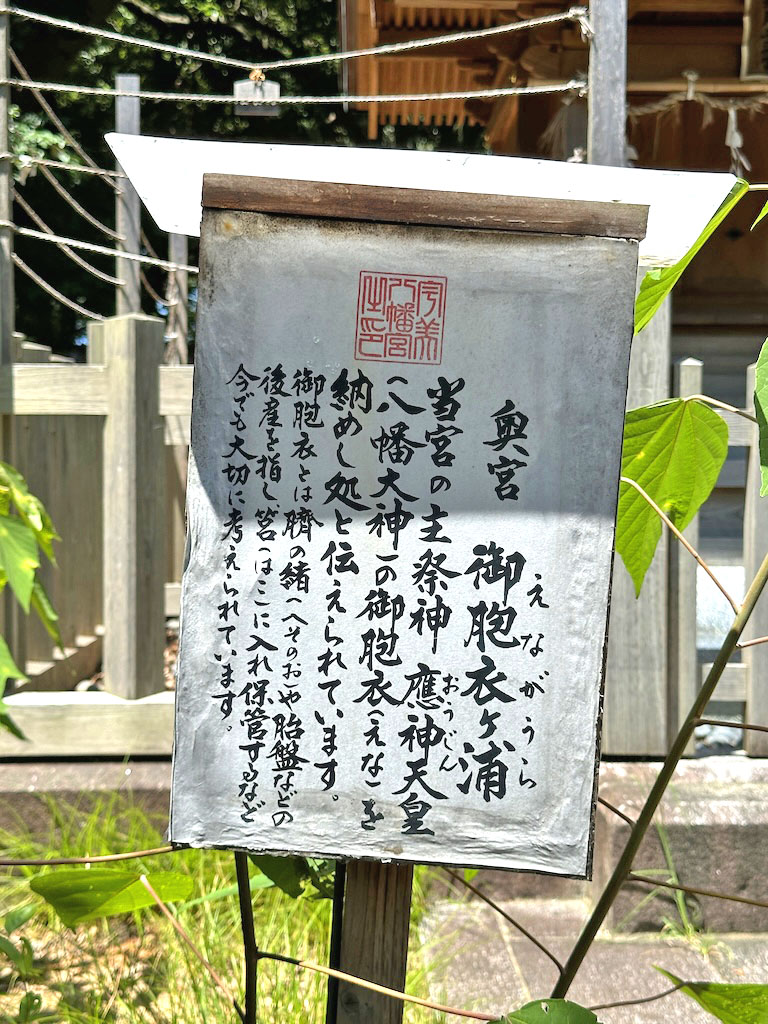 宇美
八幡宮
之印
奥宮 御胞衣ヶ浦
えながうら
当宮の主祭神 應神天皇
おうじん
(八幡大神)の御胞衣(えな)を
納めし処と伝えられています。
御胞衣とは臍の緒(へそのお)や胎盤などの
後産を指し筥(はこ)に入れ保管するなど
今でも大切に考えられています。